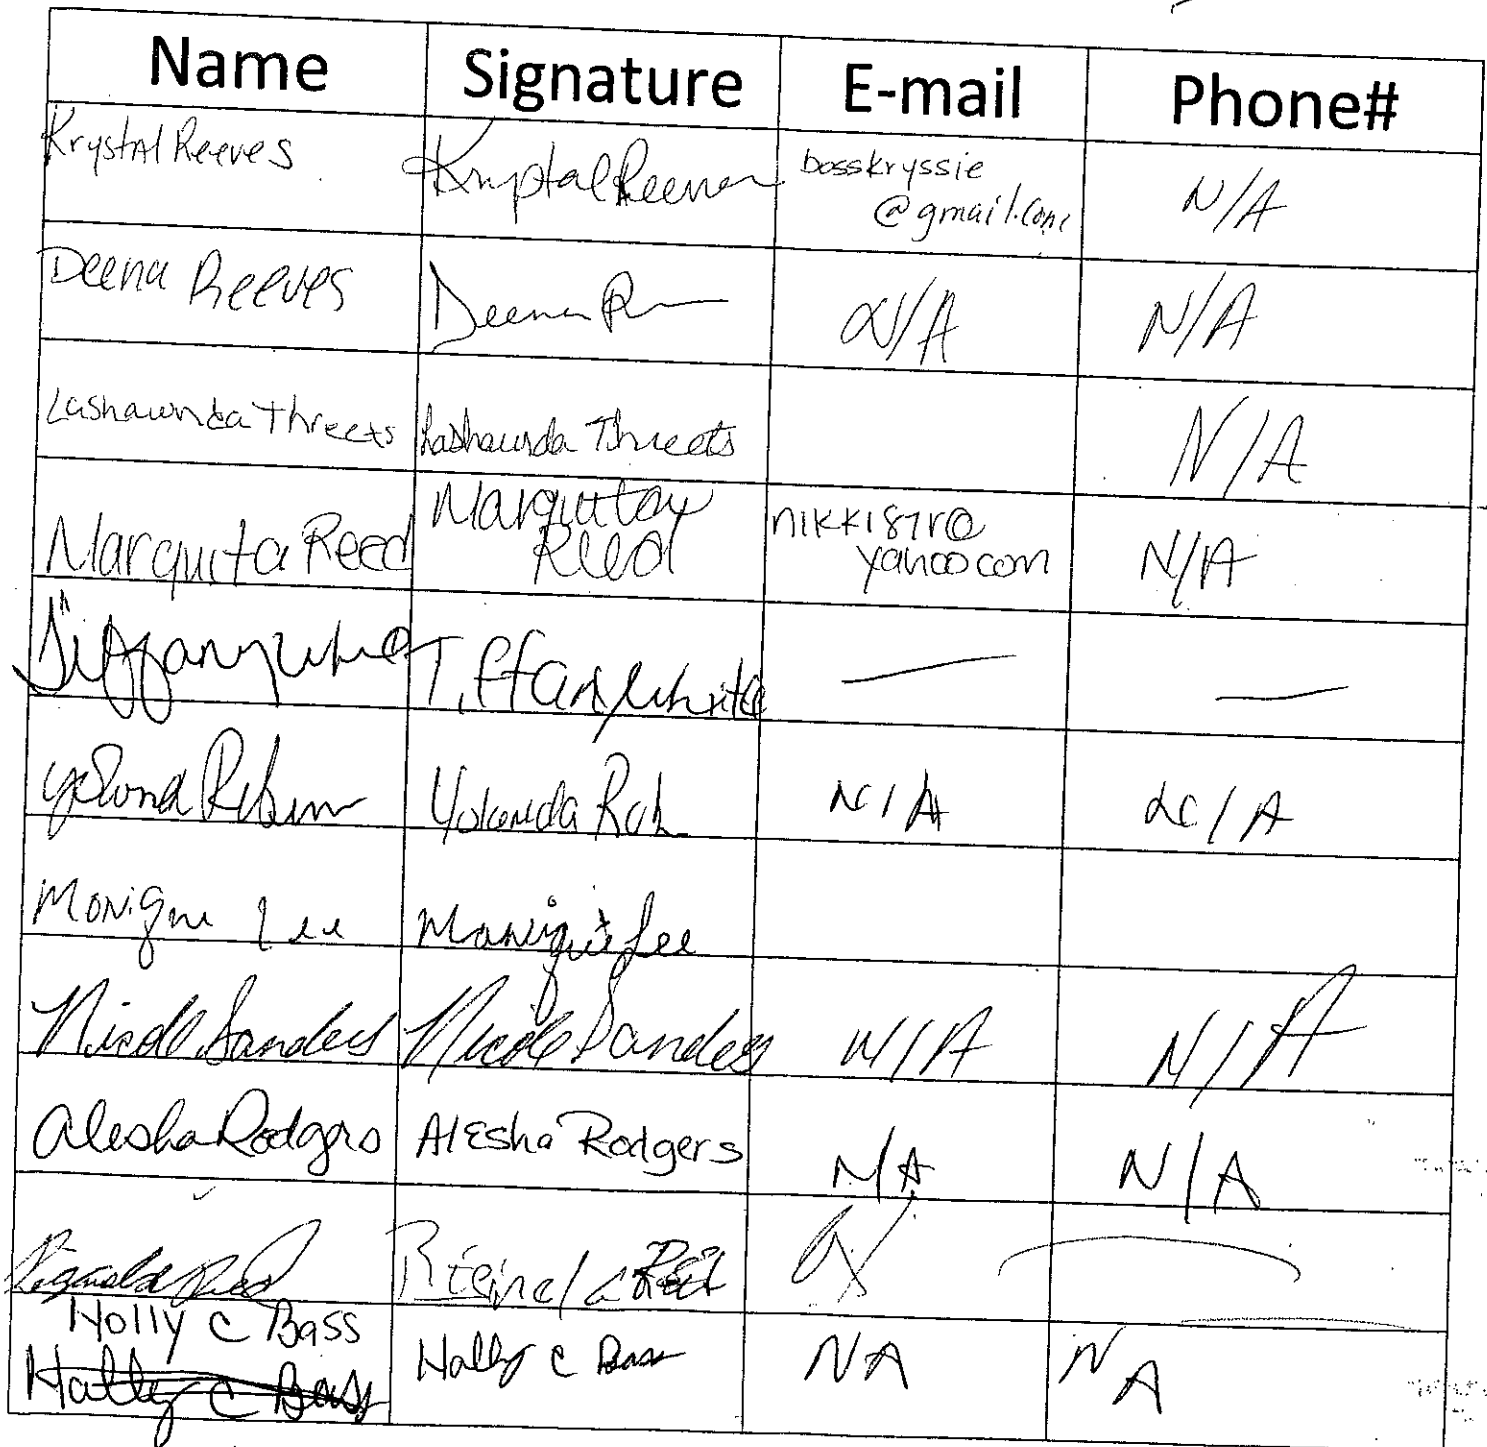 Name Signature E-mail Phone#
Krystal Reeves Krystal Reeves bosskryssie
@gmail.com N/A
Deena Reeves Deena R N/A N/A
Lashawnda Threets Lashawnda Threets N/A
Marquita Reed Marquita
Reed nikki87r@
yahoo com N/A
Tiffany White Tiffany White — —
Yolanda
Monique Lee Monique Lee
N/A N/A
Nicole Sanders Nicole Sanders N/A N/A
Alesha Rodgers Alesha Rodgers N/A N/A
Reginald Reed
Holly C Bass Holly C Bass NA NA
Holly C Bass